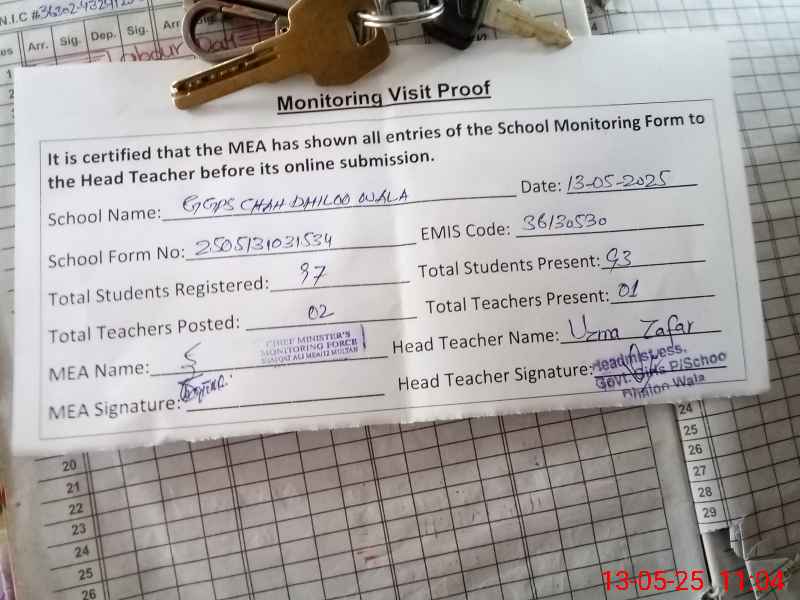 N.I.C #
Arr. Sig. Dep. Sig. Arr. Sig.
Labour Day
Monitoring Visit Proof
It is certified that the MEA has shown all entries of the School Monitoring Form to
the Head Teacher before its online submission.
School Name: GGPS CHAH DHILOO WALA Date: 13-05-2025
School Form No: 2505131031534 EMIS Code: 36130530
Total Students Registered: 97 Total Students Present: 93
Total Teachers Posted: 02 Total Teachers Present: 01
MEA Name: CHIEF MINISTER'S Head Teacher Name: Uzma Zafar
MONITORING FORCE
LIAQAT ALI MEA/12 MULTAN
MEA Signature: Head Teacher Signature: Headmistress,
Govt. Girls P/Schoo
Dhiloo Wala
20
21
22
23
24
25
26
24
25
26
27
28
29
13-05-25 11:04